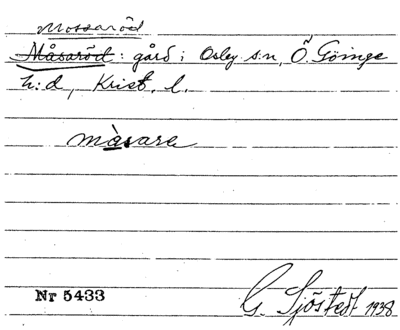 Mossaröd
Måsaröd: gård i Osby s:n, Ö. Göinge
h:d, Krist. l.
måsare
Nr 5433 G. Sjöstedt 1938